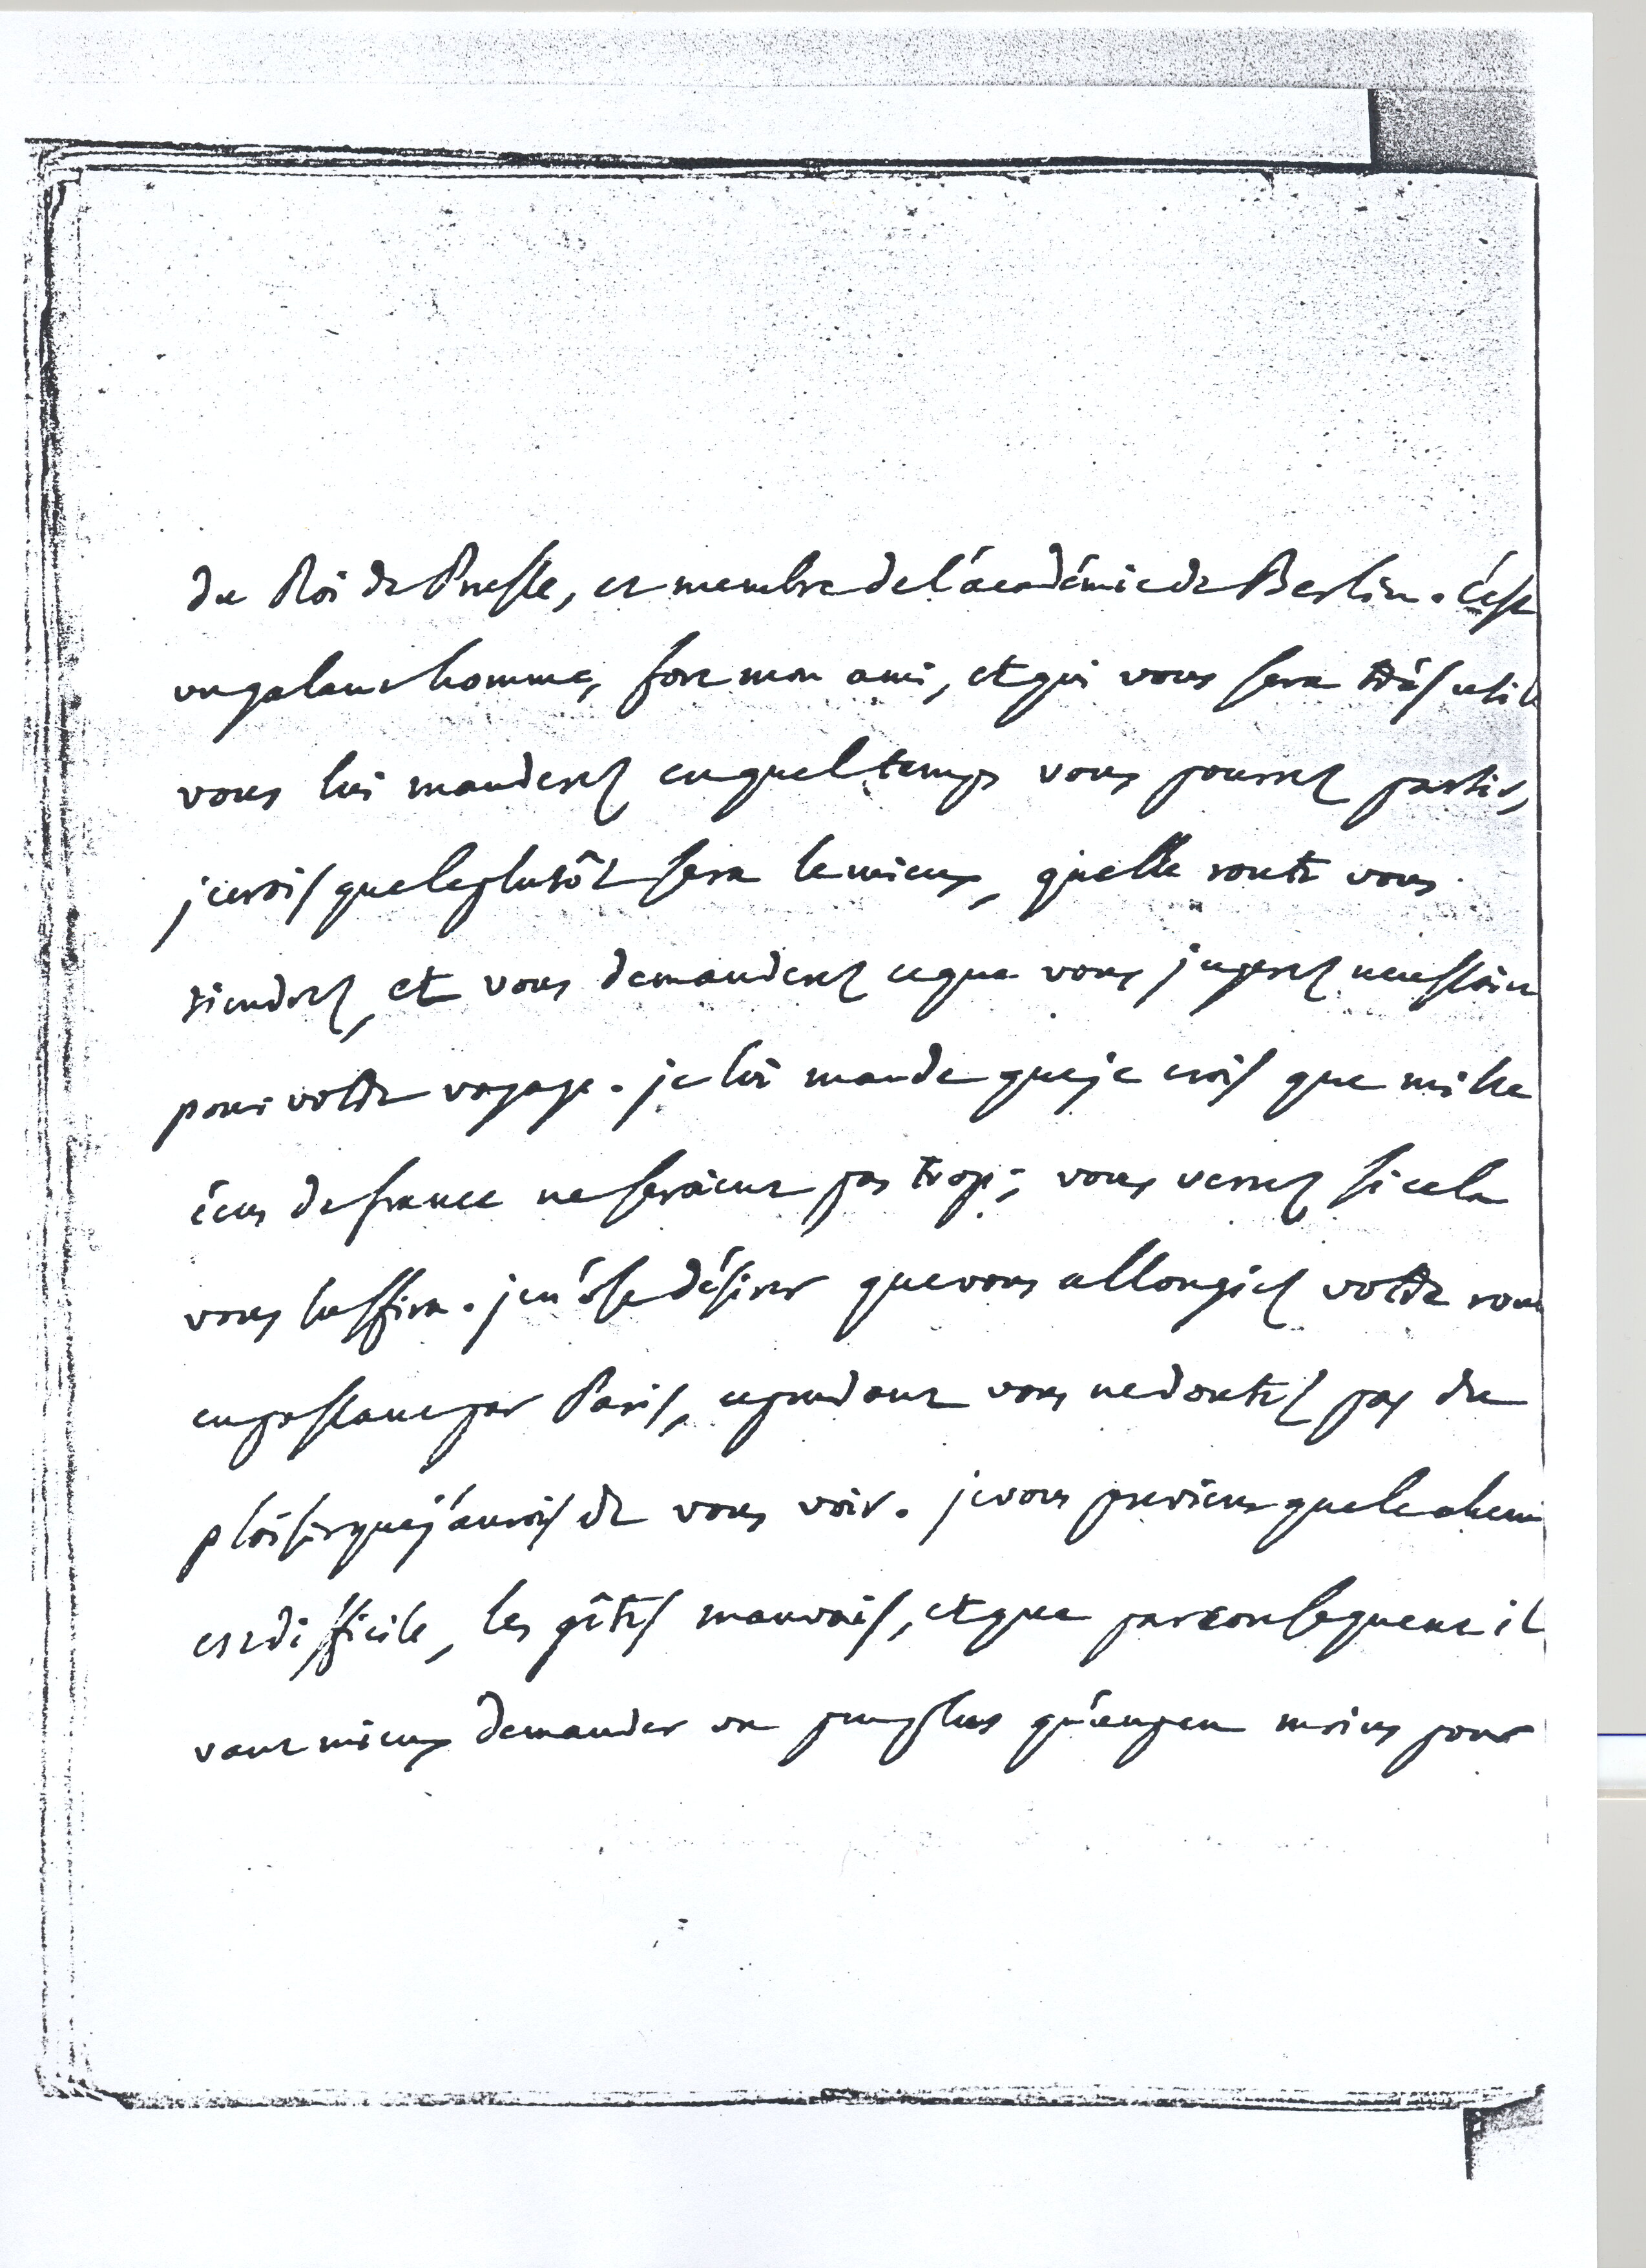 du Roi de Prusse, et membre de l'académie de Berlin. C'est
un galant homme, fort mon ami, et qui vous sera très utile
vous lui manderez en quel temps vous pourrez partir,
je crois que le plutôt sera le mieux, quelle route vous
tiendrez, et vous demanderez ce que vous jugerez necessaire
pour votre voyage. je lui mande que je crois que mille
écus de france ne seroient pas trop; vous verrez si cela
vous suffira. je n'ose désirer que vous allongiez votre rout
en passant par Paris, cependant vous ne doutez pas du
plaisir que j'aurois de vous voir. je vous previens que le chemi
est difficile, les gîtes mauvais, et que par consequent il
vaut mieux demander un peu plus qu'un peu moins pour